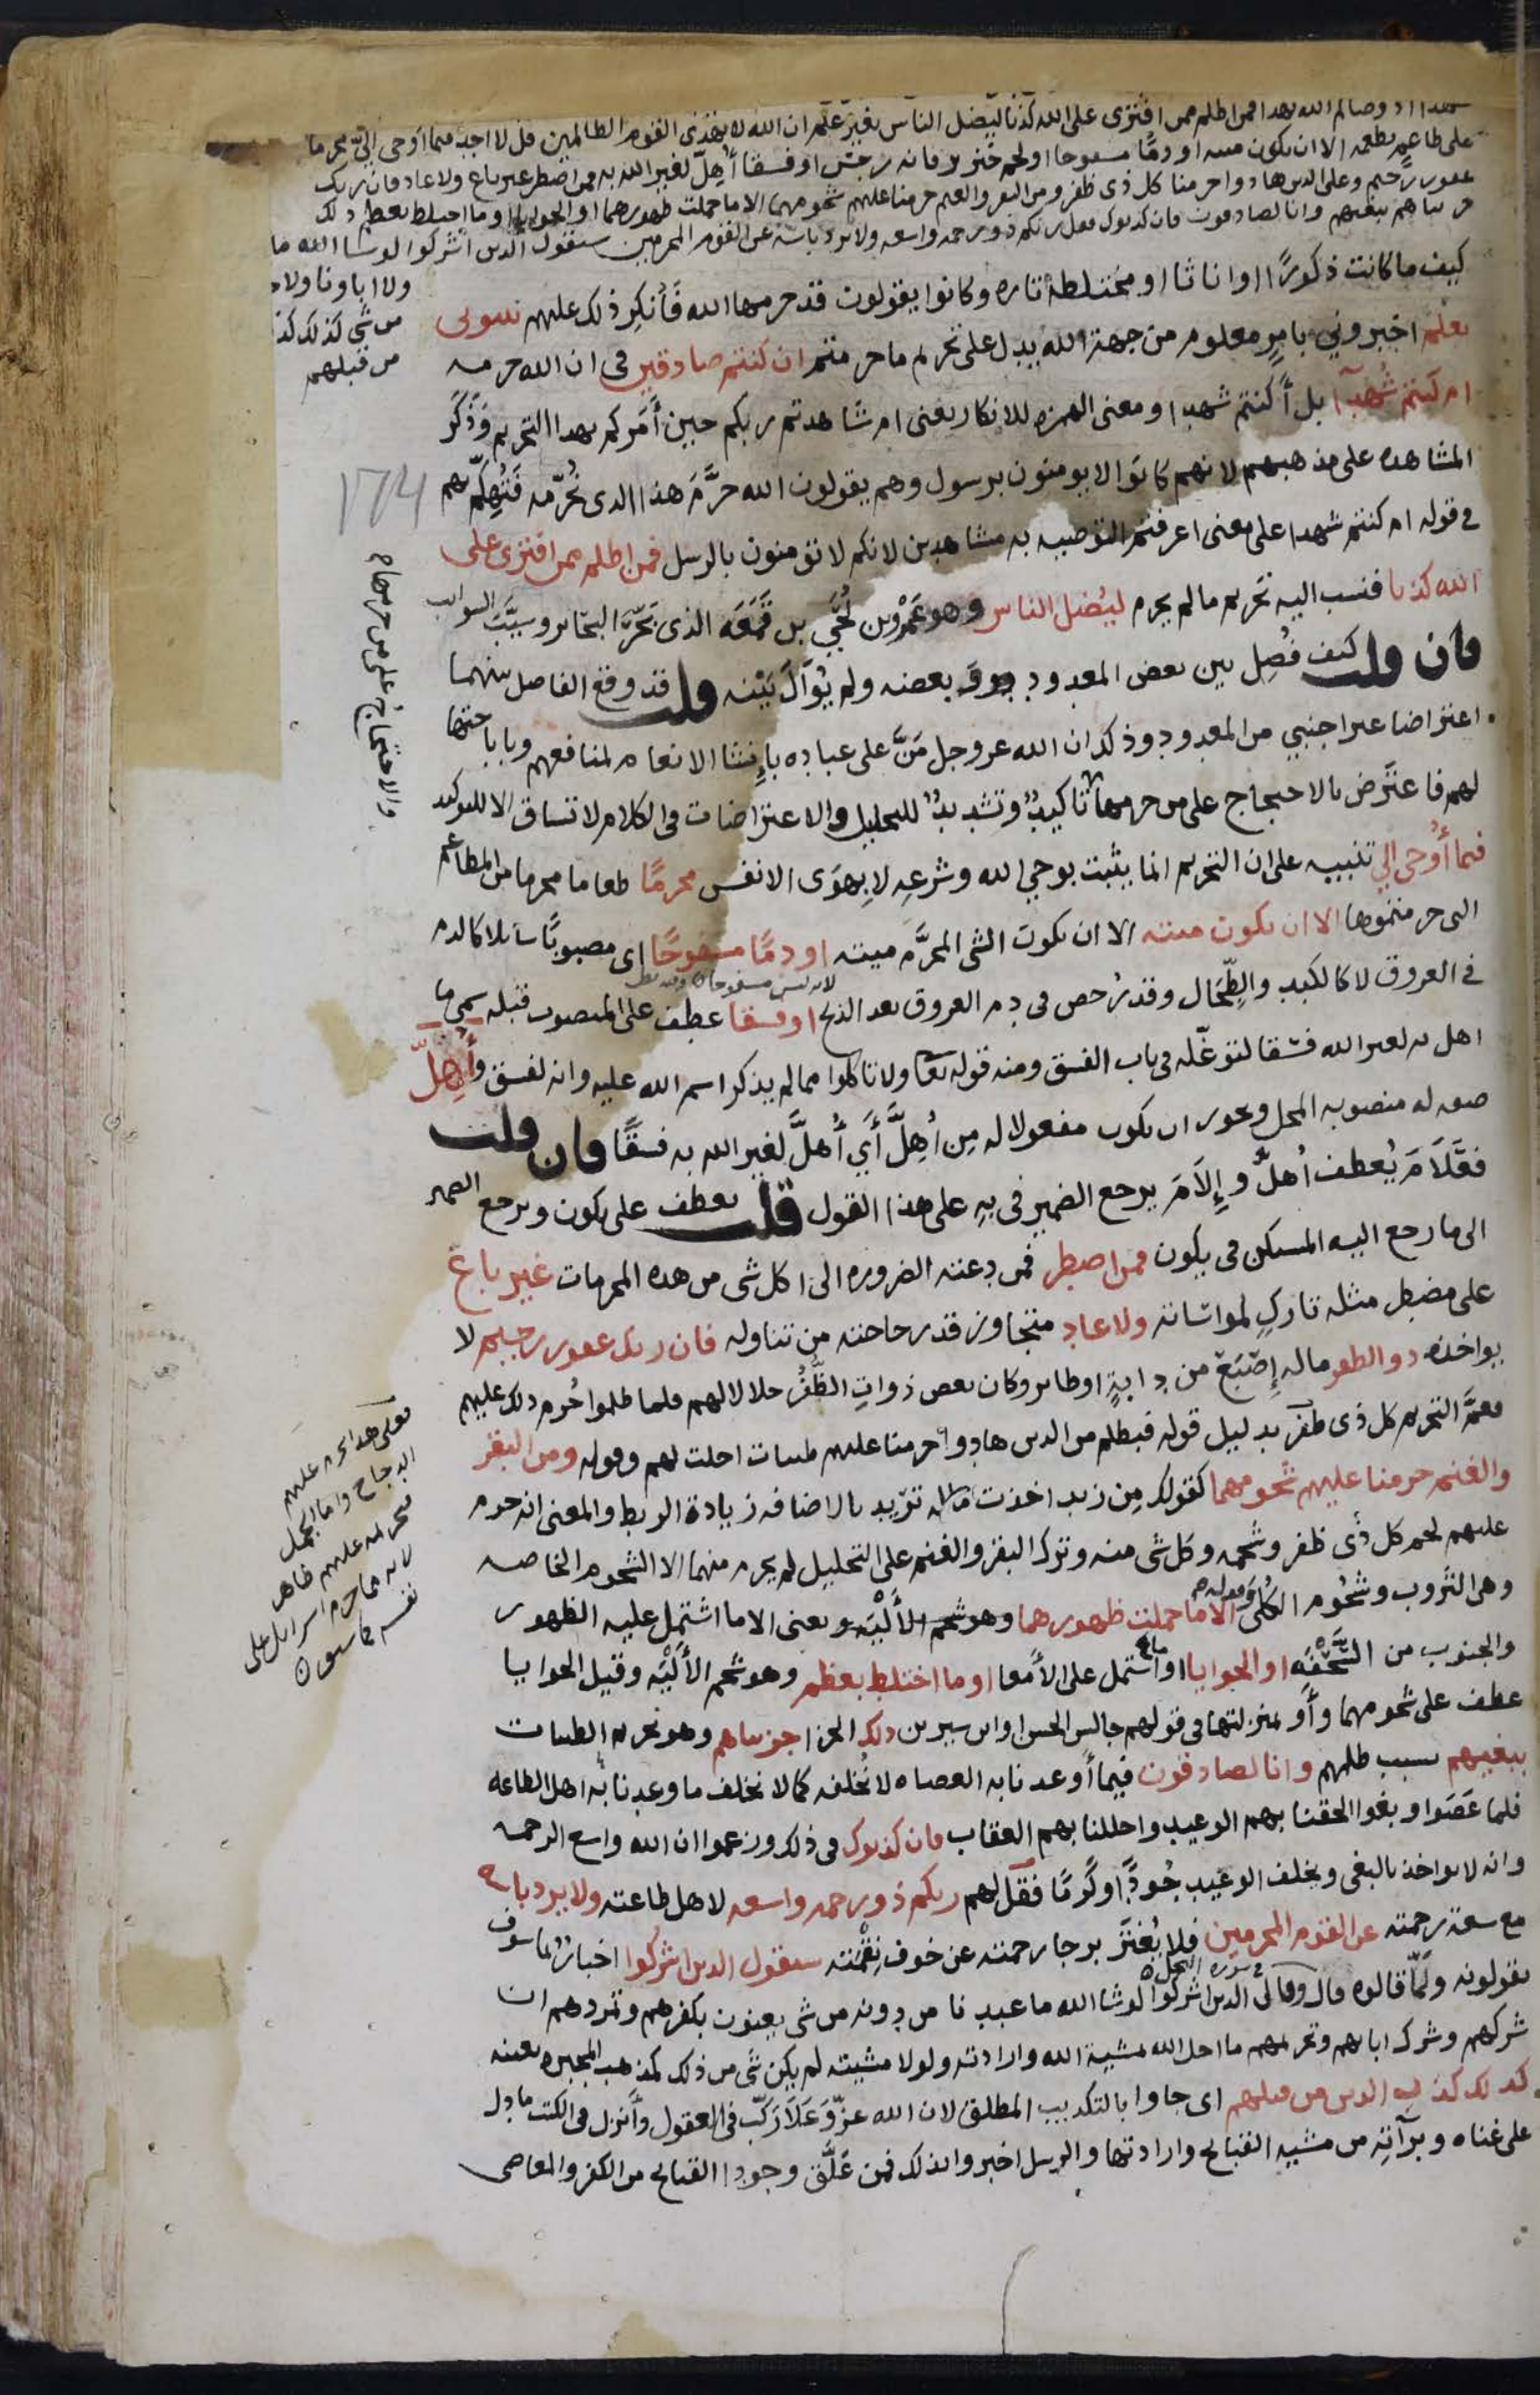 شهدا اذ وصاكم الله بهدا فمن اظلم ممن افترى على الله كذبا ليضل الناس بغير علم ان الله لا يهدى القوم الظالمين قل لا اجد فيما اوحى الىّ محرما
على طاعم يطعمه الا ان يكون ميته او دمًا مسفوحا او لحم خنزير فانه رجس او فسقا أُهِلّ لغير الله به فمن اضطر غير باغ ولا عاد فان ربك
غفور رحيم وعلى الدين هادوا حرمنا كل ذى ظفر ومن البقر والغنم حرمنا عليهم شحومهما الا ما حملت ظهورهما او الحوايا او ما اختلط بعظم ذلك
جزيناهم ببغيهم وانا لصادقون فان كذبوك فقل ربكم ذو رحمه واسعه ولا يرد باسه عن القوم المجرمين سيقول الدين اشركوا لو شا الله ما
ولا اباونا ولا
من شى كذلك كذ
من قبلهم
كيف ما كانت ذكورًا او اناثا او مختلطة تاره وكانوا يقولون قد حرمها الله فأنكر ذلك عليهم نبئونى
بعلم اخبروني بامرٍ معلوم من جهة الله يدل على تحريم ما حرمتم ان كنتم صادقين فى ان الله حرمه
ام كنتم شهدآ بل أكنتم شهدا ومعنى الهمزه للانكار يعنى ام شاهدتم ربكم حين أَمَركم بهدا التحريم وذكر
المشاهده على مذهبهم لانهم كانوا لا يومنون برسول وهم يقولون الله حرَّمَ هذا الدى نُحرّمه فتُهكّم بهم
فى قوله ام كنتم شهدا على معنى اعرفتم التوصيه به مشاهدين لانكم لا تومنون بالرسل فمن اظلم ممن افترى على
الله كذبا فنسب اليه تحريم ما لم يحرم ليُضل الناس وهو عَمْرو بن لُحَيّ بن قَمَعَه الذى بَحَّرَ البحاير وسيَّبَ السوايب
فان قلت كيف فُصِل بين بعض المعدود وبعضه ولم يُوَالَ بَيْنه قلت قد وقع الفاصل بينهما
اعتراضا غير اجنبي من المعدود وذلك ان الله عز وجل مَنَّ على عباده بإِنشا الانعام لمنافعهم وباباحتها
لهم فاعتَرض بالاحتجاج على من حرمها تاكيدٌ وتشديدٌ للتحليل والاعتراضات فى الكلام لا تساق الا للتوكيد
والاحتجاج على من حرمها م
فيما أُوحى الي تنبيه على ان التحريم انما يثبت بوحي الله وشرعِه لا بِهوَى الانفس محرمًا طعاما محرما من المطاعم
التى حرمتموها الا ان يكون ميته الا ان يكون الشى المحرَّم ميته او دمًا مسفوحًا اى مصبوبًا سايلا كالدم
فى العروق لا كالكبد والطِّحال وقد رُخص فى دم العروق بعد الذبح او فسقا عطف على المنصوب قبله سمى ما
اهل به لغير الله فسقا لتوغّله فى باب الفسق ومنه قوله تعا ولا تاكلوا مما لم يذكر اسم الله عليه وانه لفسق وأُهِلّ
صفه له منصوبه المحل ويجوز ان يكون مفعولا له مِن أُهِلَّ أَي أُهلَّ لغير الله به فسقًا فان قلت
فعَلَامَ يُعطف أُهلَّ وإِلَامَ يرجع الضمير فى بِهِ على هذا القول قلت يعطف على يكون ويرجع الضمير
الى ما رجع اليه المستكن فى يكون فمن اضطر فمن دعته الضروره الى اكل شى من هده المحرمات غير باغ
على مضطر مثله تاركٍ لمواسَاته ولا عاد متجاوز قدر حاجته من تناوله فان ربك غفور رحيم لا
يواخذه ذو الظفر ما له إِصْبَعٌ من دابةٍ او طاير وكان بعض ذواتِ الظُّفُر حلالا لهم فلما ظلموا حُرم ذلك عليهم
فعَمَّ التحريم كل ذى ظفر بدليل قوله فبظلم من الدين هادوا حرمنا عليهم طيبات احلت لهم وقوله ومن البقر
والغنم حرمنا عليهم شحومهما كقولك مِن زيد اخذت ماله تريد بالاضافه زيادة الربط والمعنى انه حرم
عليهم لحم كل ذى ظفر وشحمه وكل شى منه وترك البقر والغنم على التحليل لم يحرم منهما الا الشحوم الخاصه
فعلى هدا حرم عليهم
الدجاج واما الجمل
فتحريمه عليهم ظاهر
لانه مما حرم اسرايل على
نفسه
وهى الثروب وشحُوم الكُلَى وقوله الا ما حملت ظهورهما وهو شحم الأَلْيَه يعنى الا ما اشتمل عليه الظهور
والجنوب من السَّحْفَه او الحوايا او اشتمل على الأمعا او ما اختلط بعظم وهو شحم الأَلْيَه وقيل الحوايا
عطف على شحومهما وأَو بمنزلتها فى قولهم جالس الحسن او ابن سيرين ذلك الجزا جزيناهم وهو تحريم الطيبات
ببغيهم بسبب ظلمهم وانا لصادقون فيما أوعدنا به العصاه لا نُخلفه كما لا نخلف ما وعدنا به اهل الطاعه
فلما عَصَوا وبغوا الحقنا بهم الوعيد واحللنا بهم العقاب فان كذبوك فى ذلك وزعموا ان الله واسع الرحمه
وانه لا يواخذ بالبغى ويخلف الوعيد جُودًا وكَرمًا فقل لهم ربكم ذو رحمه واسعه لاهل طاعته ولا يرد باسه
مع سعة رحمته عن القوم المجرمين فلا يُغترّ برجا رحمته عن خوف نِقْمَته سيقول الدين اشركوا اخبار بما سوف
يقولونه ولَمّا قالوه قال وقال الدين اشركوا لو شا الله ما عبدنا من دونه من شى يعنون بكفرهم وتمردهم ان
شركهم وشرك ابايهم وتحريمهم ما احل الله بمشية الله وارادته ولولا مشيته لم يكن شى من ذلك كمذهب المجبره بعينه
كدلك كذب الدين من قبلهم اى جاوا بالتكديب المطلق لان الله عزّ وَعَلَا رَكّب فى العقول وأَنزل فى الكتب ما دل
على غناه وبرآتِه من مشية القبايح وارادتها والرسل اخبروا بذلك فمن عَلَّقَ وجود القبايح من الكفر والمعاصى